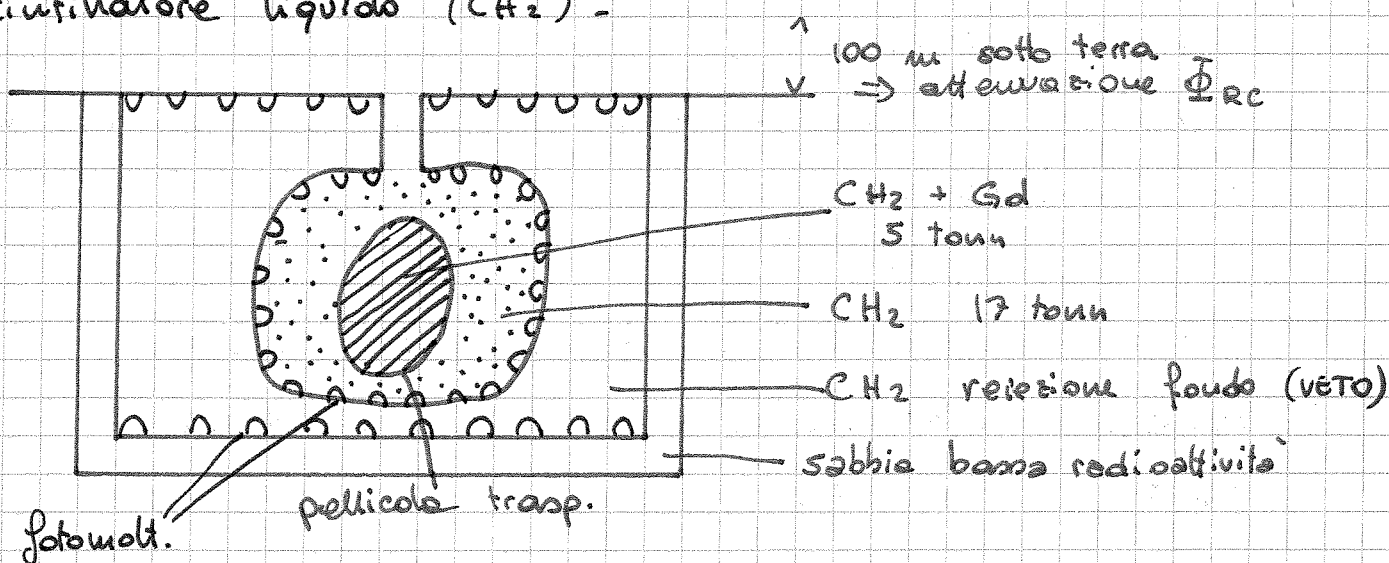 scintillatore liquido (CH2) -
100 m sotto terra
=> attenuazione ΦRC
CH2 + Gd
5 tonn
CH2 17 tonn
CH2 reiezione fondo (VETO)
sabbia bassa radioattività
pellicola trasp.
fotomolt.